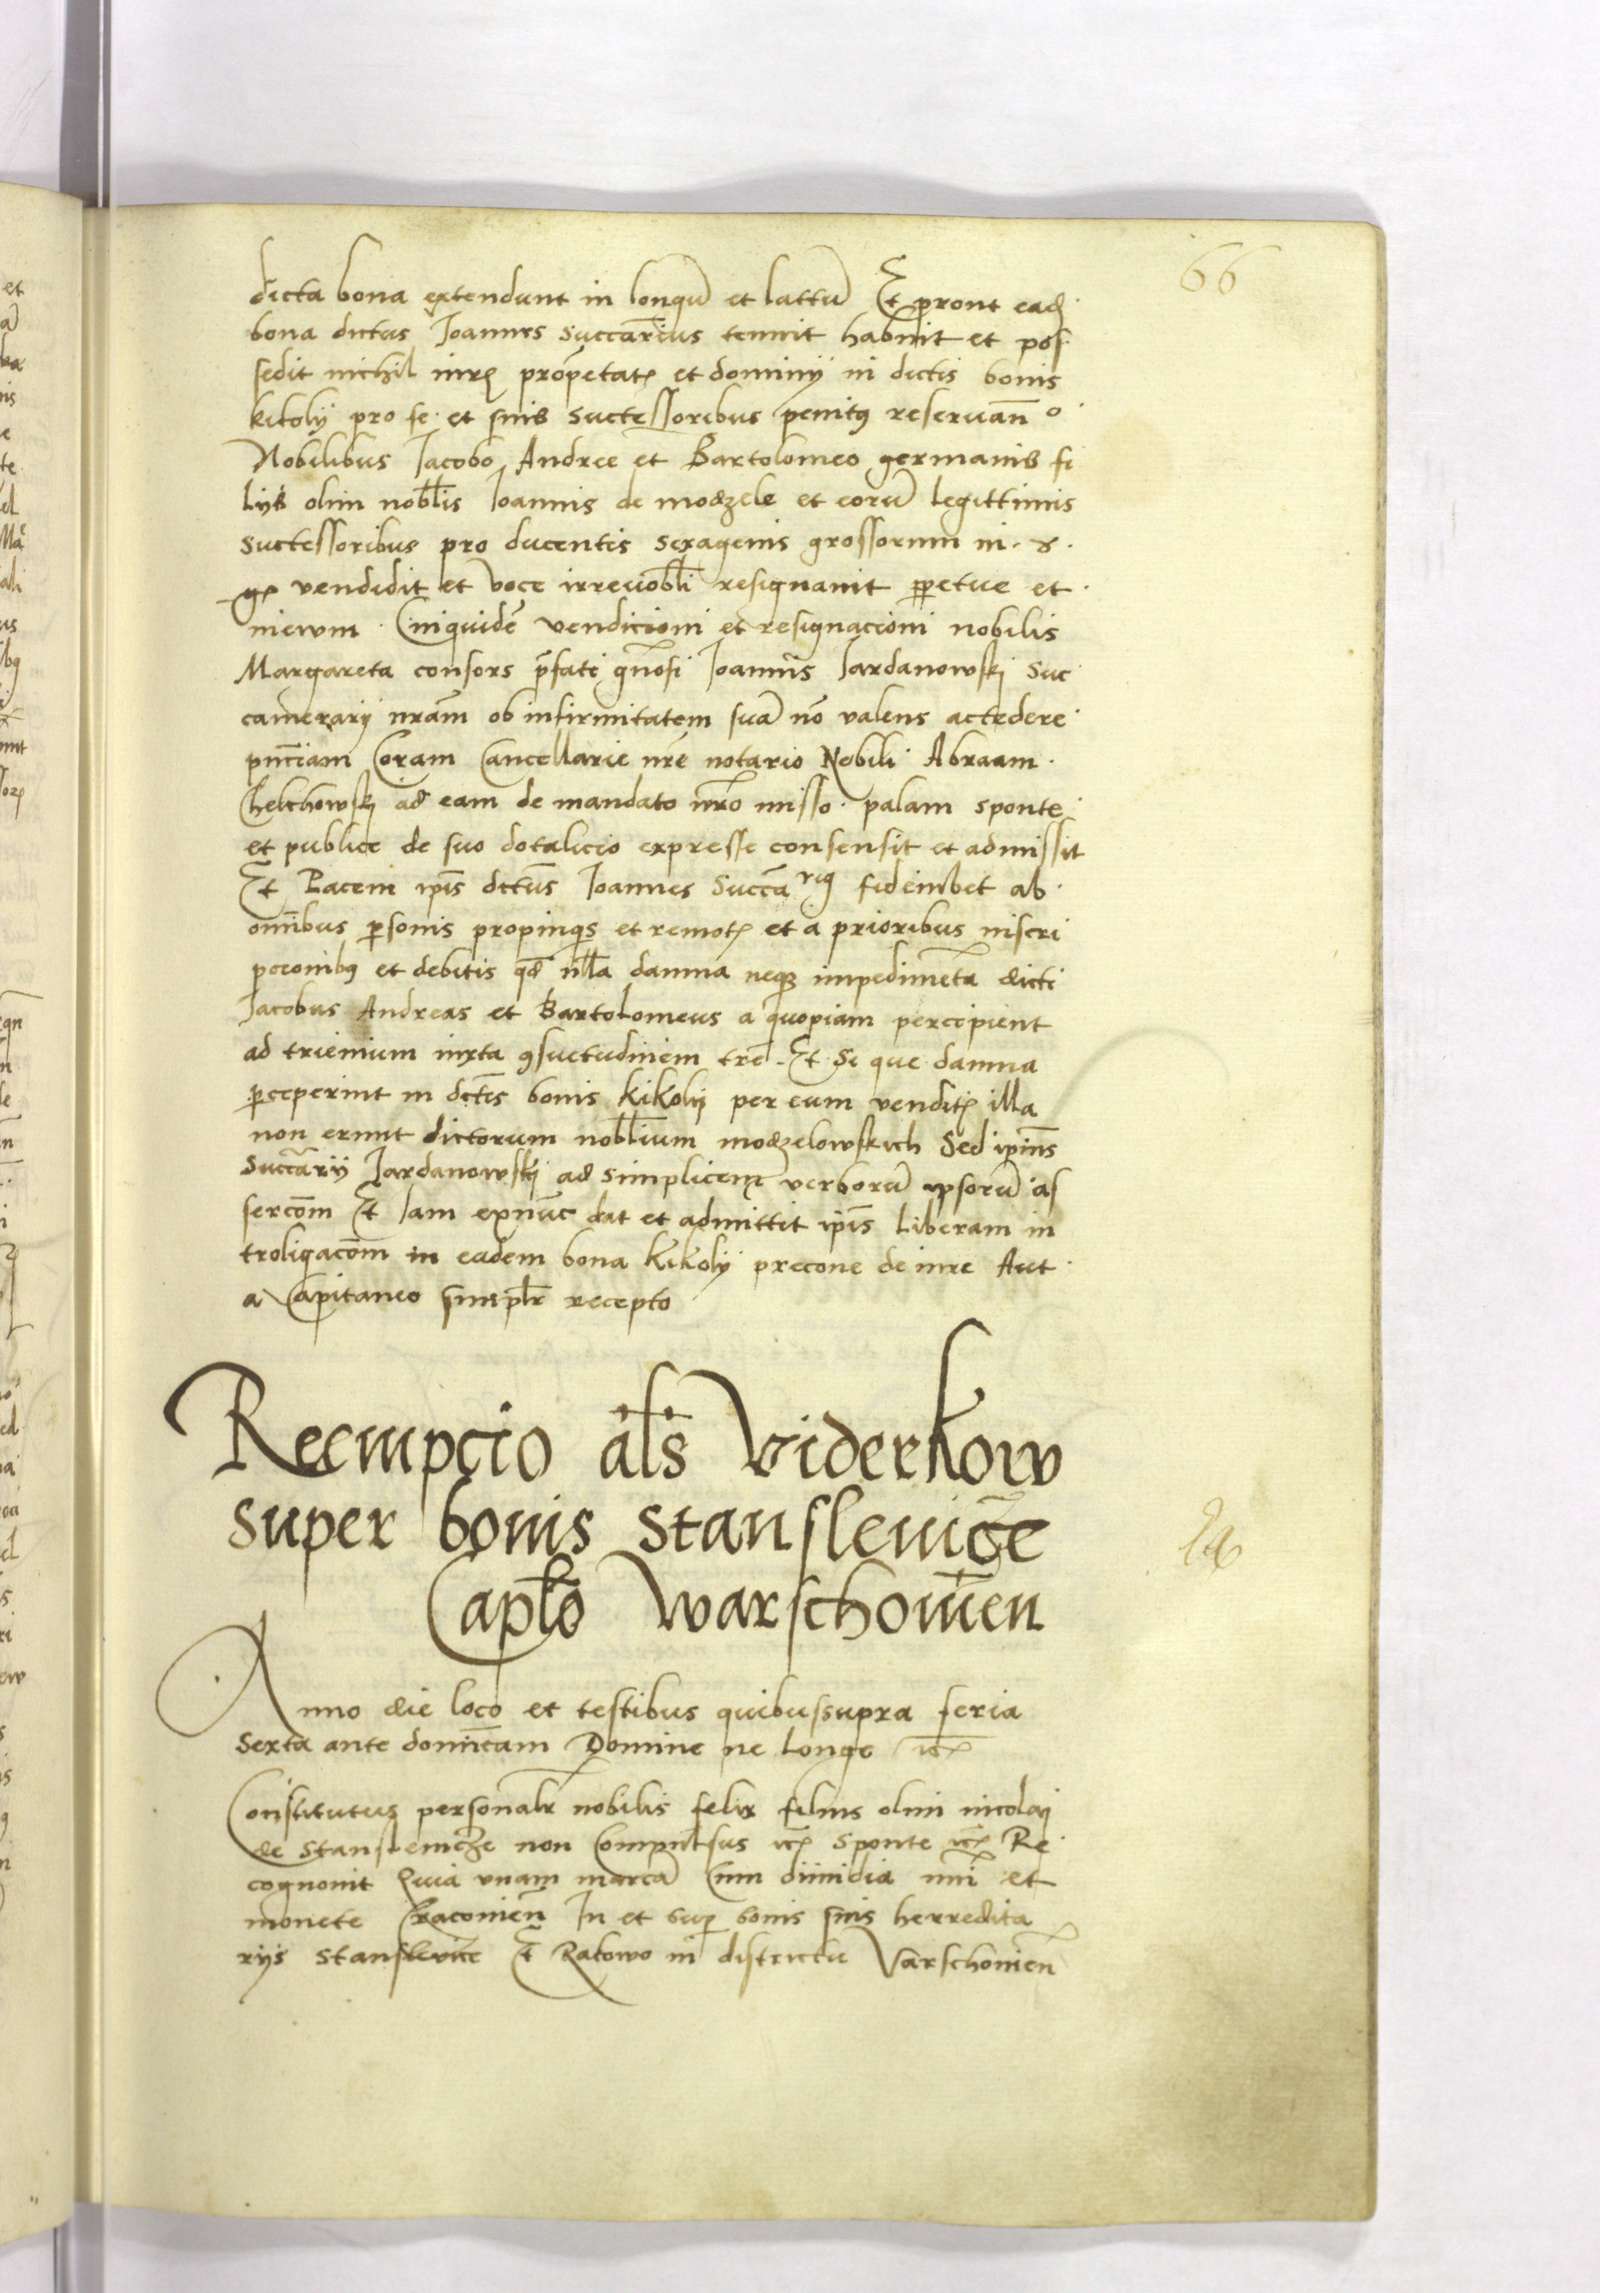 66
dicta bona extendunt in longū et lattū Et prout eadē
bona dictus Joannes Succarius tenuit habuit et pos
sedit nichil iurᵉ propetatᵉ et dominij in dictis bonis
kikolij pro se et suis successoribus penitꝰ reservan̄ o
Nobilibus Jacobo Andree et Bartolomeo germanis fi
lijs olim nobłis Joannis de modzele et eorū legittimis
successoribus pro ducentis sexagenis grossorum in
vendidit et voce irrevobłi resignavit ꝑpetue et
inevum Cuiquidē vendicioni et resignacioni nobilis
Margareta consors p̄fati gn̄osi Joannis Jardanowskj Suc
camerarij nrām ob infirmitatem suā nō valens accedere
pn̄ciam Coram Cancellarie nr̄e notario Nobili Abraam
Chelchowskj ad eam de mandato nr̄o misso palam sponte
et publice de suo dotalicio expresse consensit et admissit
Et Pacem ip̄is dctūs Joannes Succārig fideiubet ab
omībus ꝑsonis propinqis et remotᵉ et a prioribus inscri
pcionibꝰ et debitis qd̄ nłła damna neqꝫ impedimēta dicti
Jacobus Andreas et Bartolomeus a quopiam percipient
ad trienium iuxta ꝯsuetudinem trē Et Si que damna
ꝑceperint in dctīs bonis kikolij per eum venditᵉ illa
non erunt dictorum nobłium modzelowskich Sed ipīus
Succārij Jardanowskj ad simplicem verborū ipsorū as
sercōm Et Jam exnūc dat et admittit ip̄is liberam in
troligacōm in eadem bona kikolij precone de iure Aut
a Capitaneo simplr̄ recepto
Reempcio als̄ Viderkow
super bonis Stanslevicze
Capło Warschovien̄
Anno die loco et testibus quibussupra feria
Sexta ante domīcam Domine ne longe ꝛcᵉ
Constitutus personalr̄ nobilis felix filius olim nicolaj
de Stanslevicze non Compulsus ꝛcᵉ Sponte ꝛcᵉ Re
cognovit Quia unam marcā Cum dimidia nūi et
monete Craconien̄ In et suꝑ bonis suis herredita
rijs Stanslevice Et Rakowo in districtu Varschovien̄